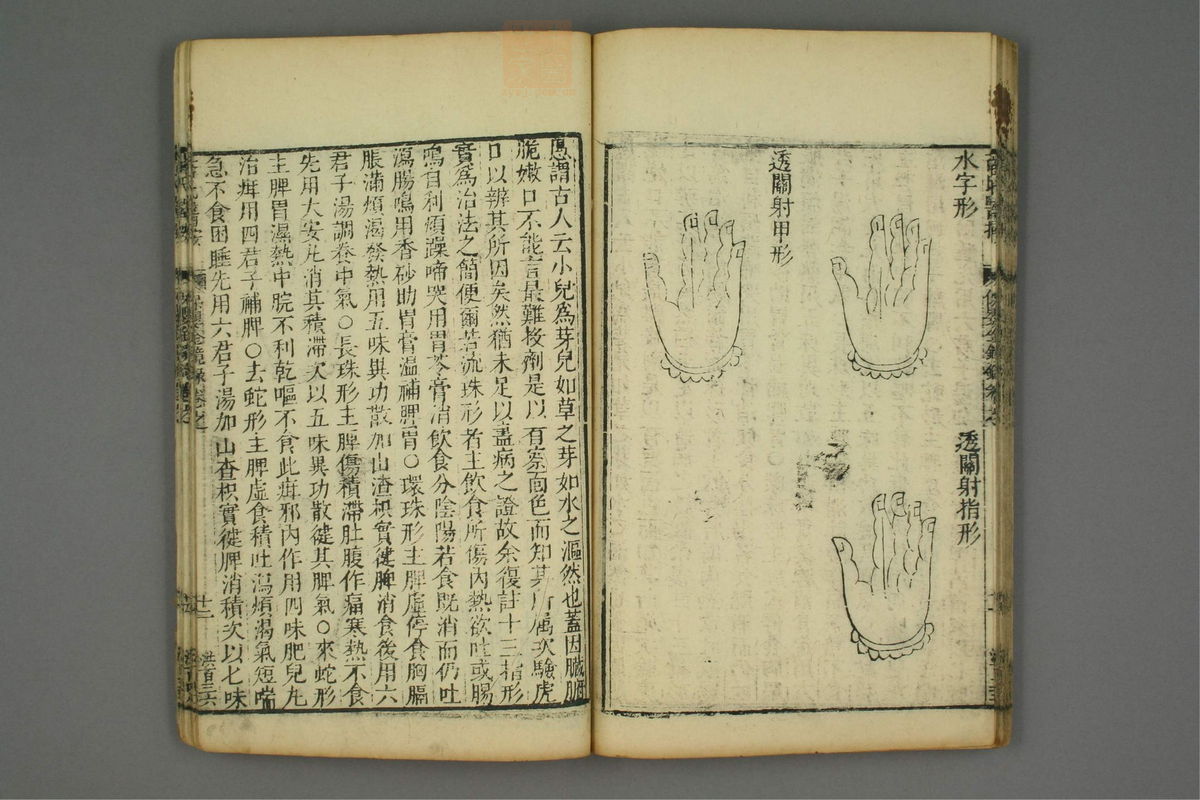 水字形
透關射指形
透關射甲形
愚謂古人云小兒為芽兒如草之芽如水之漚然也蓋因臟腑
脆嫩口不能言最難投劑是以有察面色而知其所屬次驗虎
口以辨其所因矣然猶未足以盡病之證故余復註十三指形
實為治法之簡便爾若流珠形者主飲食所傷內熱欲吐或腸
鳴自利煩躁啼哭用胃苓膏消飲食分陰陽若食既消而仍吐
瀉腸鳴用香砂助胃膏溫補脾胃○環珠形主脾虛停食胸膈
脹滿煩渴發熱用五味異功散加山查枳實健脾消食後用六
君子湯調養中氣○長珠形主脾傷積滯肚腹作痛寒熱不食
先用大安丸消其積滯次以五味異功散健其脾氣○來蛇形
主脾胃濕熱中脘不利乾嘔不食此疳邪內作用四味肥兒丸
治疳用四君子補脾○去蛇形主脾虛食積吐瀉煩渴氣短喘
急不食困睡先用六君子湯加山查枳實健脾消積次以七味
保嬰金鏡錄